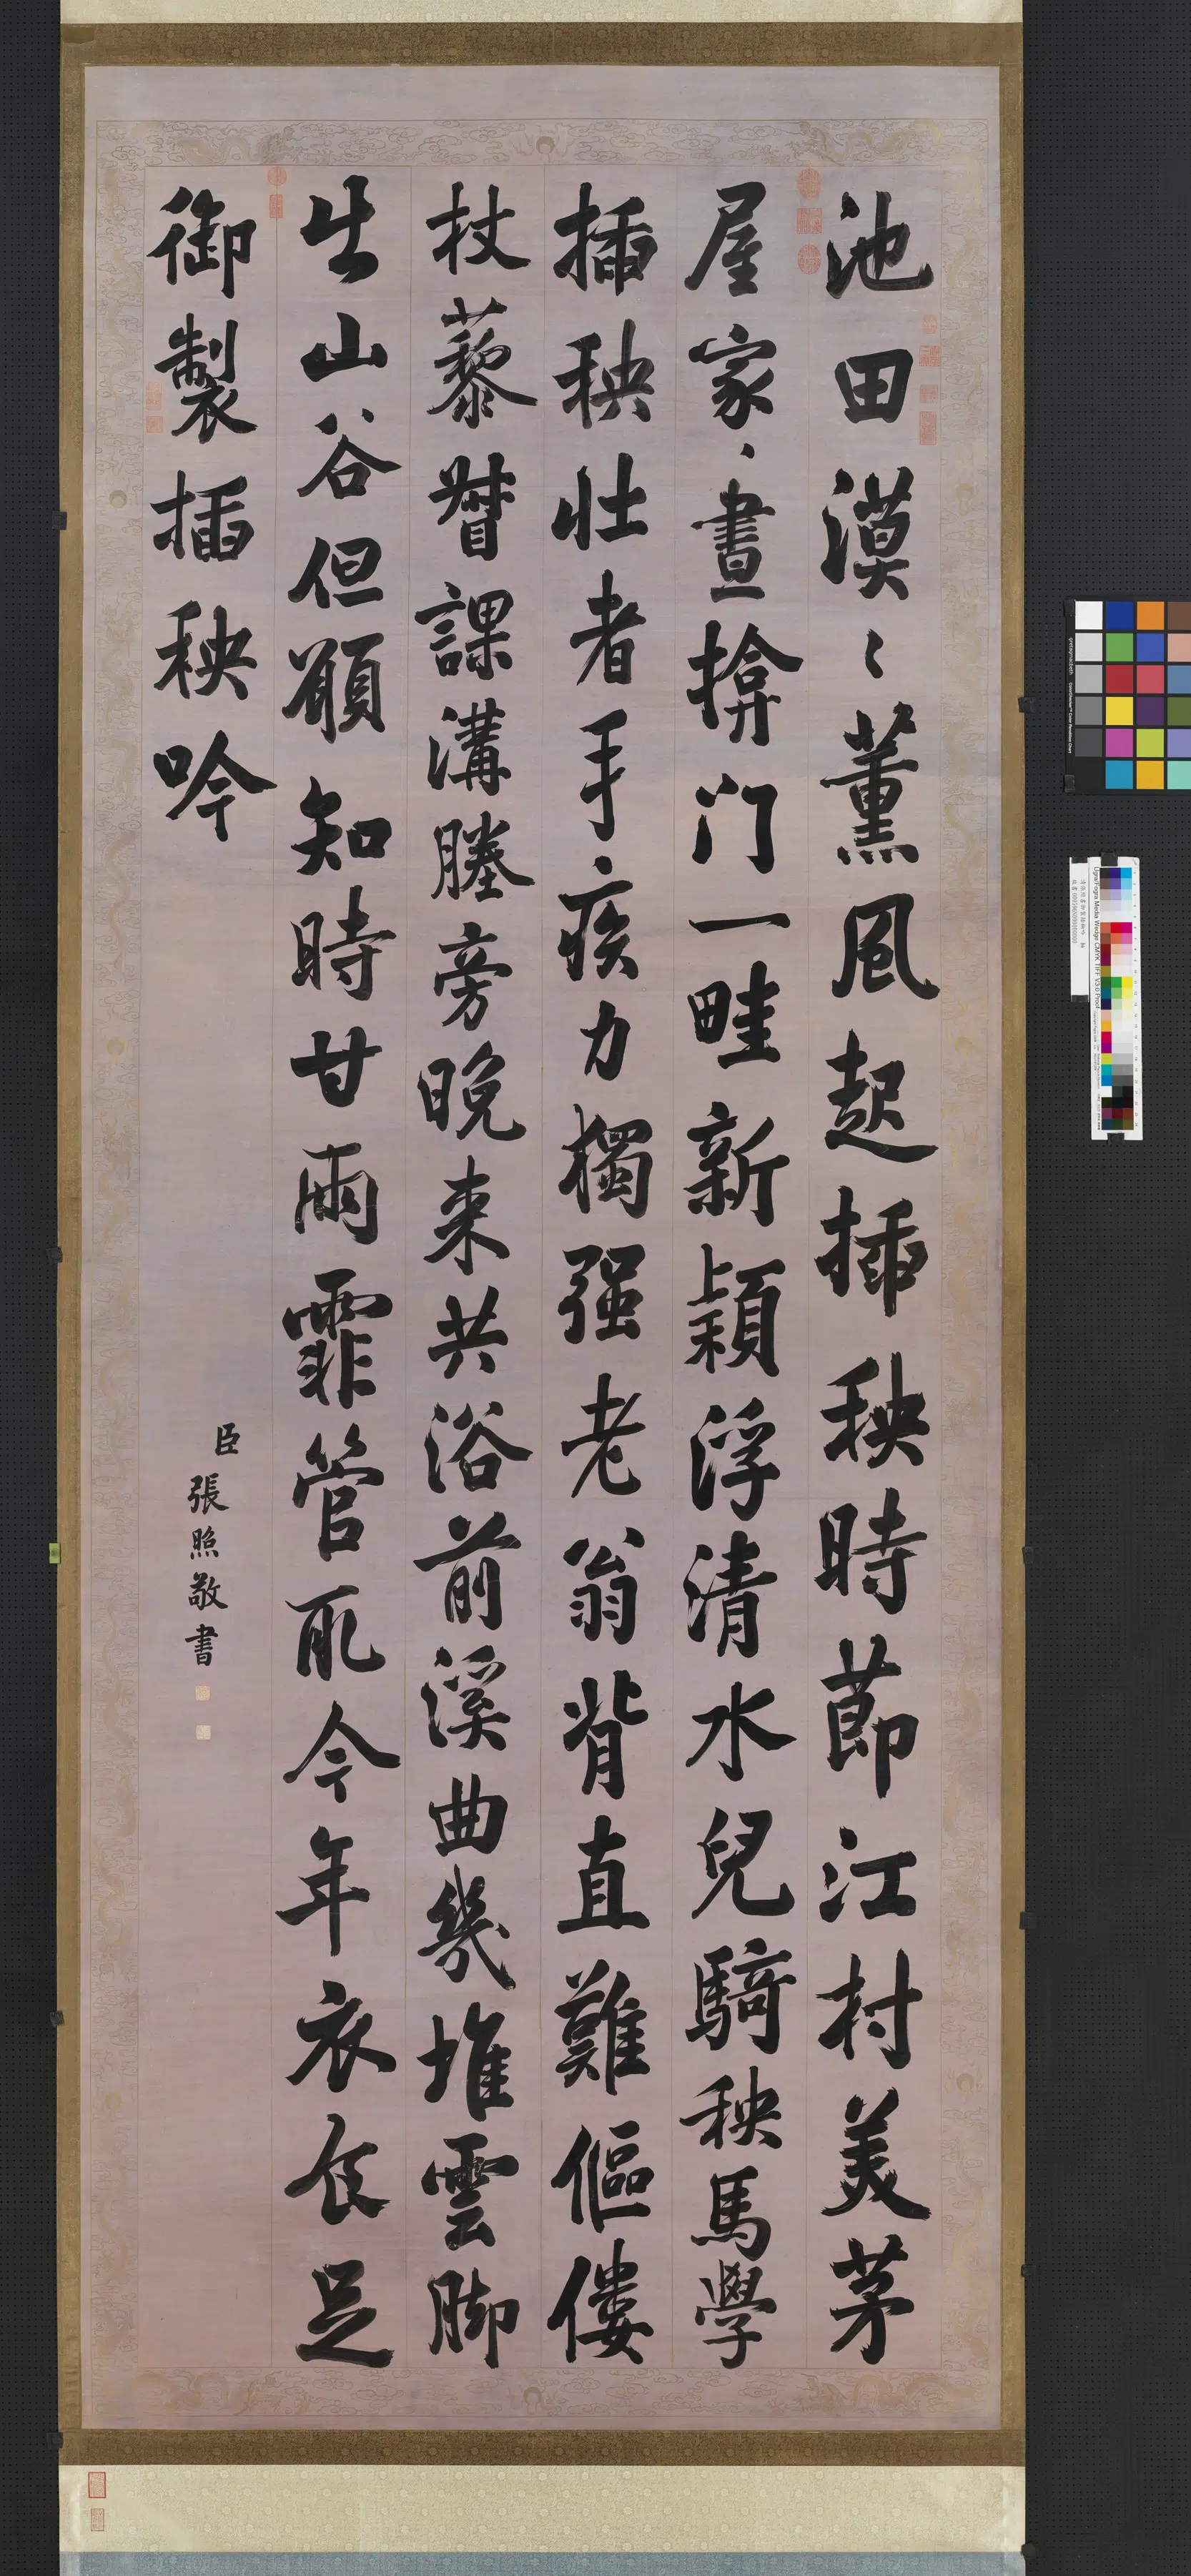 池田漠〻薰風起插秧時節江村美茅
屋家〻晝揜门一畦新穎浮清水兒騎秧馬學
插秧壯者手疾力獨强老翁背直難傴僂
杖藜督課溝塍旁晚来共浴前溪曲幾堆雲脚
出山谷但願知時甘雨霏管取今年衣食足
御製插秧吟
臣張照敬書